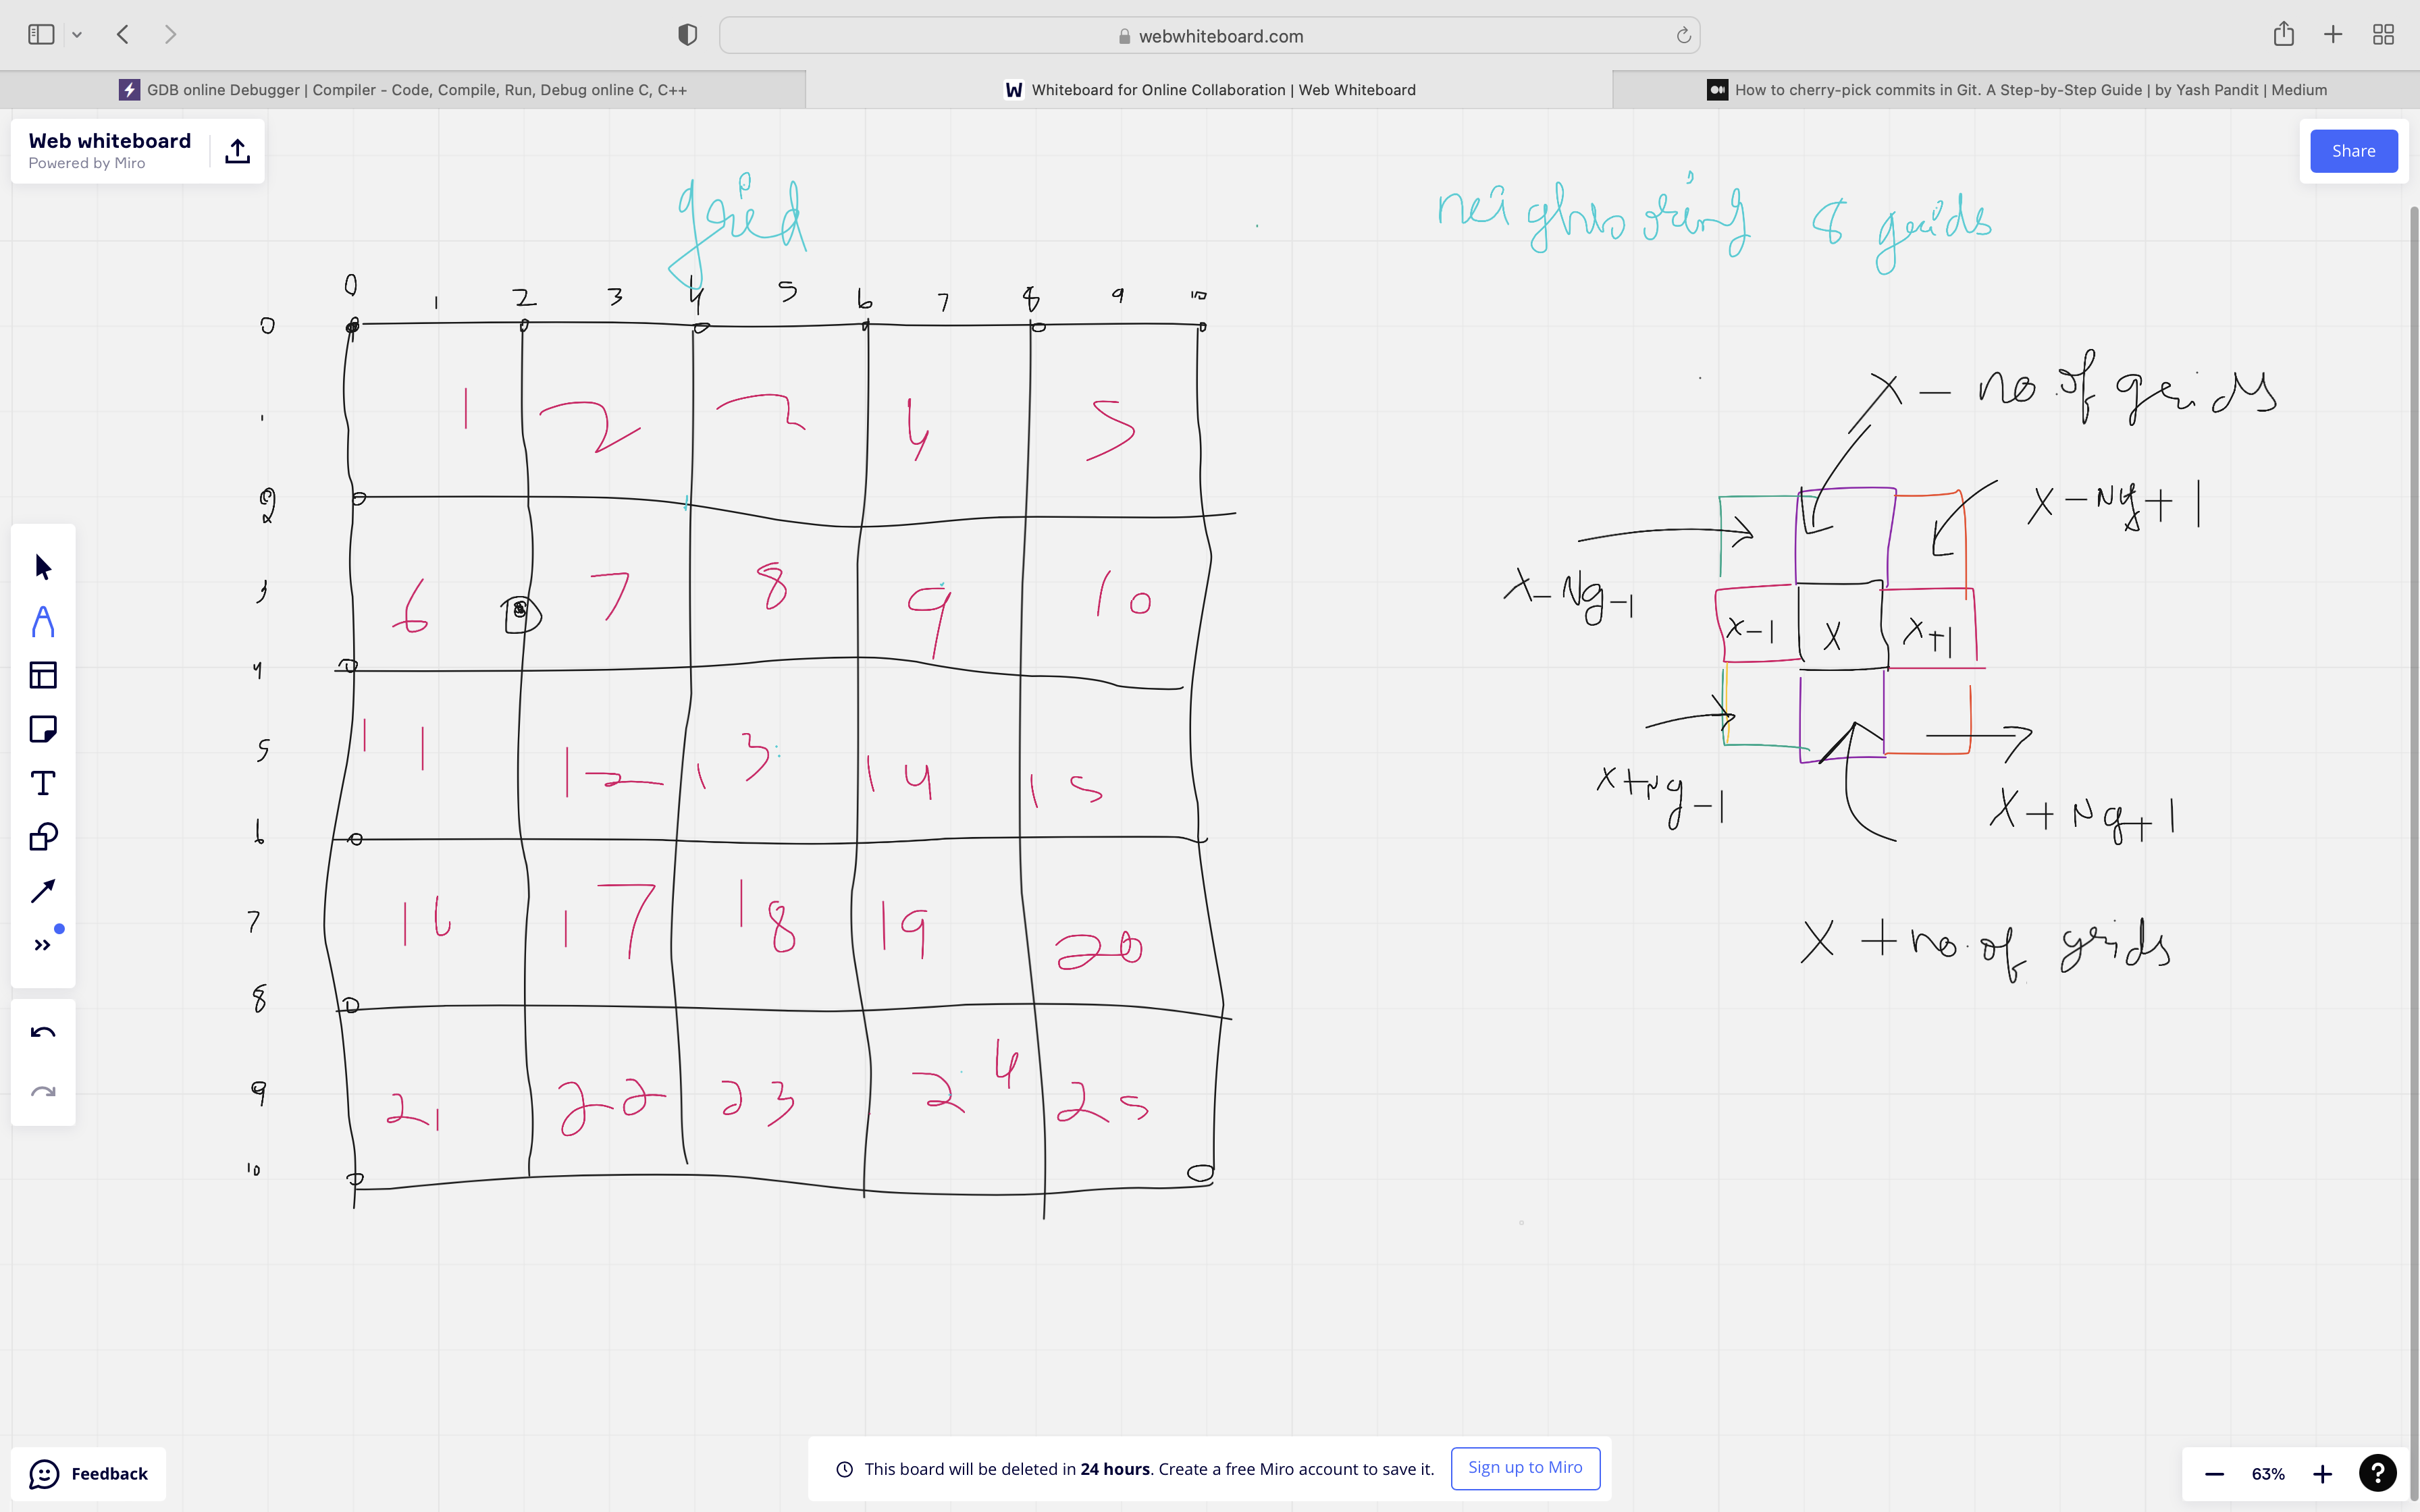 webwhiteboard.com
GDB online Debugger | Compiler - Code, Compile, Run, Debug online C, C++
W Whiteboard for Online Collaboration | Web Whiteboard
How to cherry-pick commits in Git. A Step-by-Step Guide | by Yash Pandit | Medium
Web whiteboard
Powered by Miro
Share
grid
neighboring 8 grids
0 1 2 3 4 5 6 7 8 9 10
0
1
2
3
4
5
6
7
8
9
10
1 2 3 4 5
6 7 8 9 10
11 12 13 14 15
16 17 18 19 20
21 22 23 24 25
X - no. of grids
X - Ng + 1
X - Ng - 1
X-1 X X+1
X + Ng - 1
X + Ng + 1
X + no. of grids
T
Feedback
This board will be deleted in 24 hours. Create a free Miro account to save it.
Sign up to Miro
63%
?